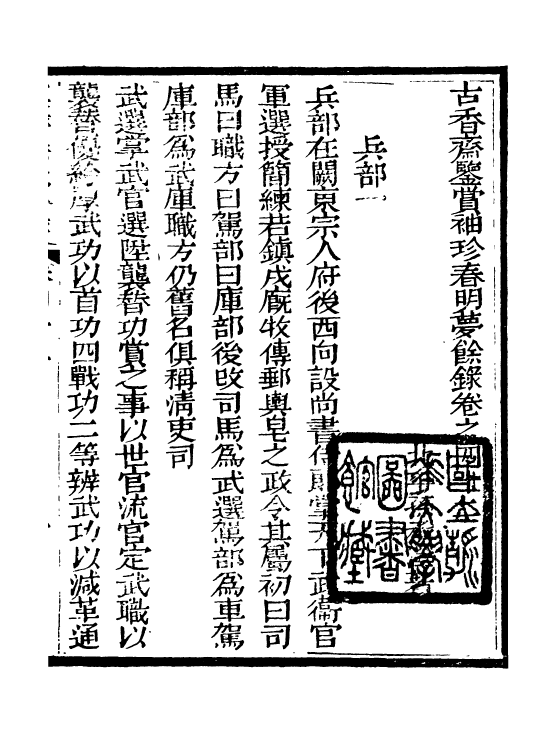 古香齋鑒賞袖珍春明夢餘錄卷之四
兵部一
兵部在闕東宗人府後西向設尚書侍郎掌天下武衞官
軍選授簡練若鎮戍廐牧傳郵輿皂之政令其屬初曰司
馬曰職方曰駕部曰庫部後改司馬爲武選駕部爲車駕
庫部爲武庫職方仍舊名俱稱淸吏司
武選掌武官選陞襲替功賞之事以世官流官定武職以
襲替優給厚武功以首功四戰功二等辨武功以減革通
圖書